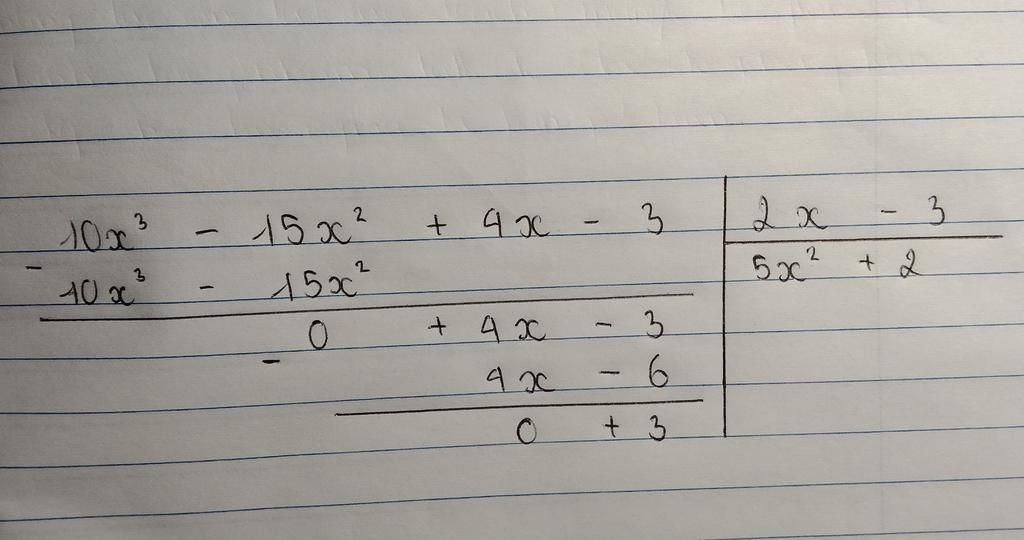 10x³ - 15x² + 4x - 3 | 2x - 3
- 10x³ - 15x² | 5x² + 2
0 + 4x - 3
- 4x - 6
0 + 3